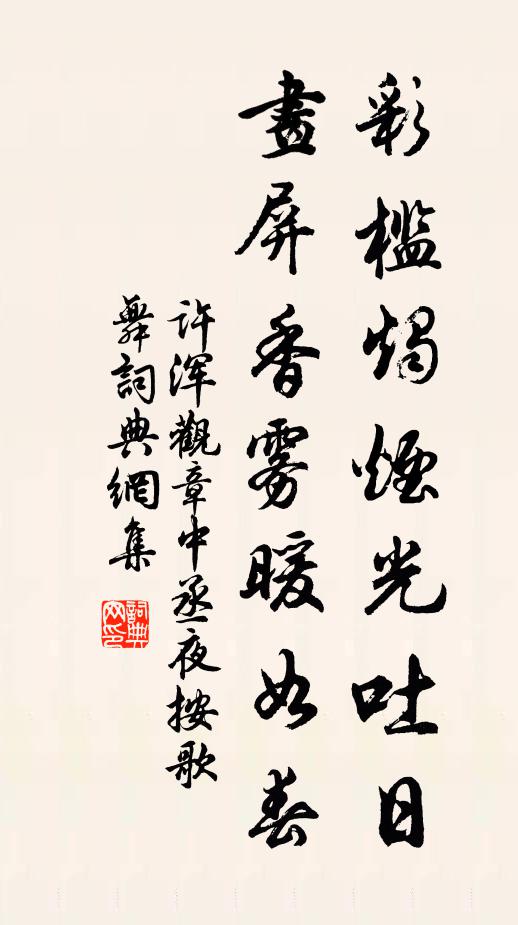 彩檻燭煙光吐日
畫屏香雾暖如春
许渾觀章中丞夜按歌
舞詞典網集
詞典网印